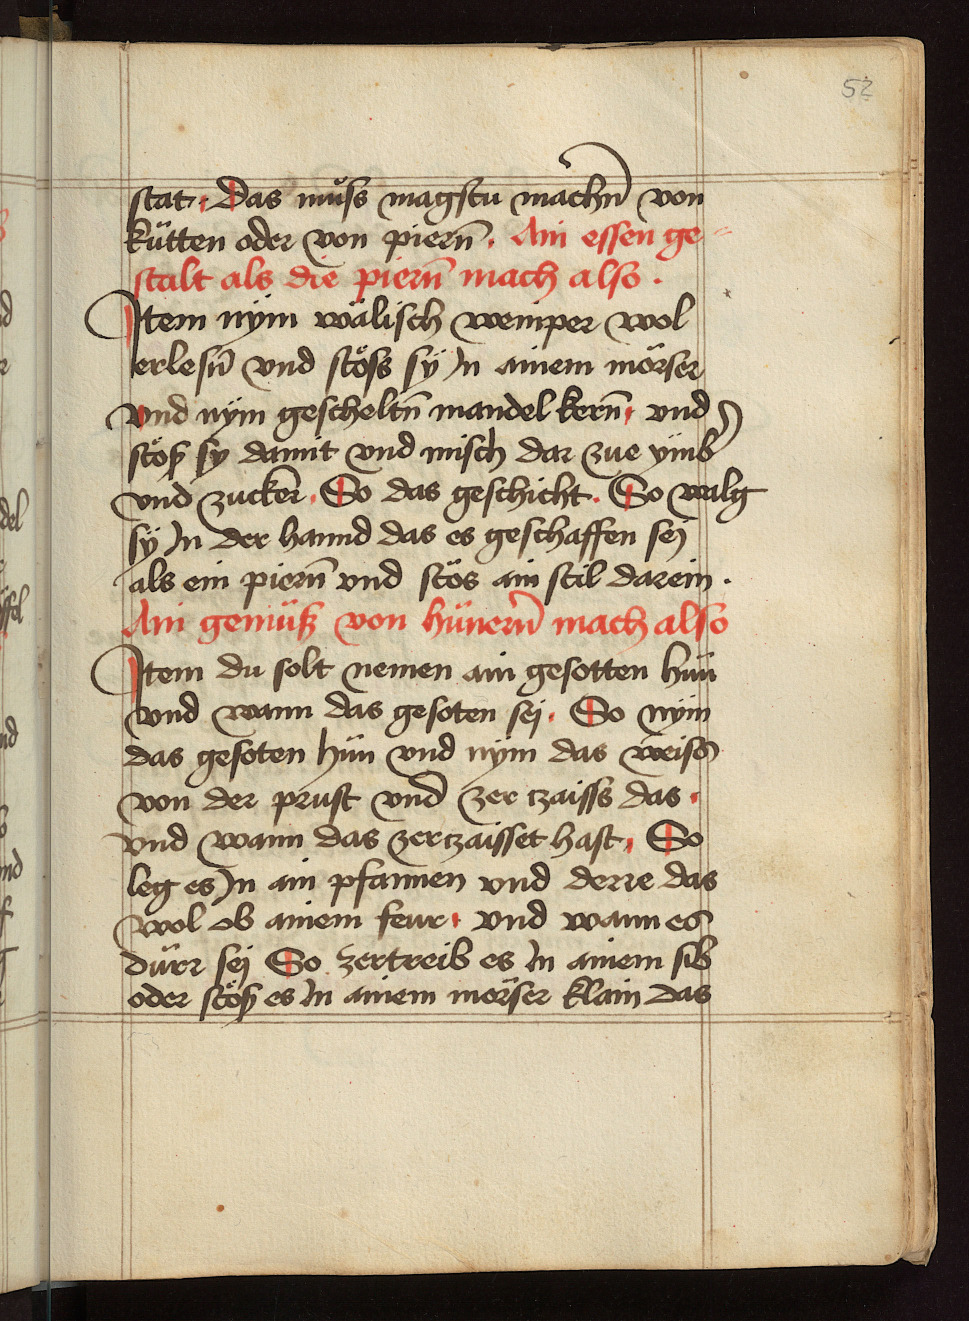 52
stat. Das můss magstu machñ von
kütten oder von pierñ. Ain essen ge=
stalt als die pierñ mach also.
Item nÿm wälisch weinper wol
erlesñ vnd stöss sÿ In ainem mörser
vnd nÿm gescheltñ mandel kerñ, vnd
stöß sy damit vnd misch dar zue ymb̃
vnd zucker. So das geschicht. So walg
sÿ In der hannd das es geschaffen seÿ
als ein pierñ vnd stös ain stil darein.
Ain gemüß von hünerñ mach also
Item du solt nemen ain gesotten hůn
vnd wann das gesoten seÿ. So nÿm
das gesoten hůn vnd nÿm das weiss
von der prust vnd zer zaiss das.
vnd wann das zerzaisset hast, So
leg es In ain pfannen vnd derre das
wol ob ainem feur. vnd wann es
dürr seÿ So zertreib es In ainem sib
oder stöß es In ainem mörser klain das